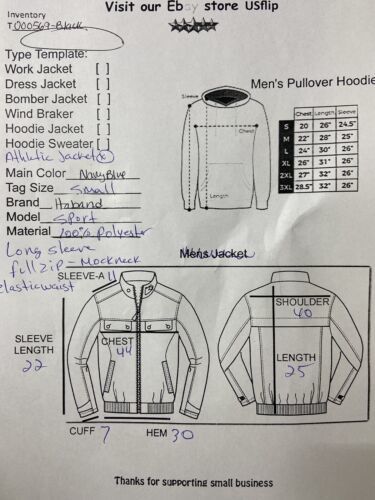 Visit our Ebay store USflip
Inventory
T000569-Black
Type Template:
Work Jacket [ ]
Dress Jacket [ ]
Bomber Jacket [ ]
Wind Braker [ ]
Hoodie Jacket [ ]
Hoodie Sweater[ ]
Athletic Jacket(x)
Main Color Navy Blue
Tag Size Small
Brand Hzband
Model Sport
Material 100% Polyester
Long sleeve
full zip - Mockneck
elastic waist
Men's Pullover Hoodie
Sleeve
Chest
Length
Chest Length Sleeve
S 20 26" 24.5"
M 22" 28" 25"
L 24" 30" 26"
XL 26" 31" 26"
2XL 27" 32" 26"
3XL 28.5" 32" 26"
Mens Jacket
SLEEVE-A 11
SLEEVE LENGTH
22
CHEST
44
CUFF 7
HEM 30
SHOULDER
40
LENGTH
25
Thanks for supporting small business